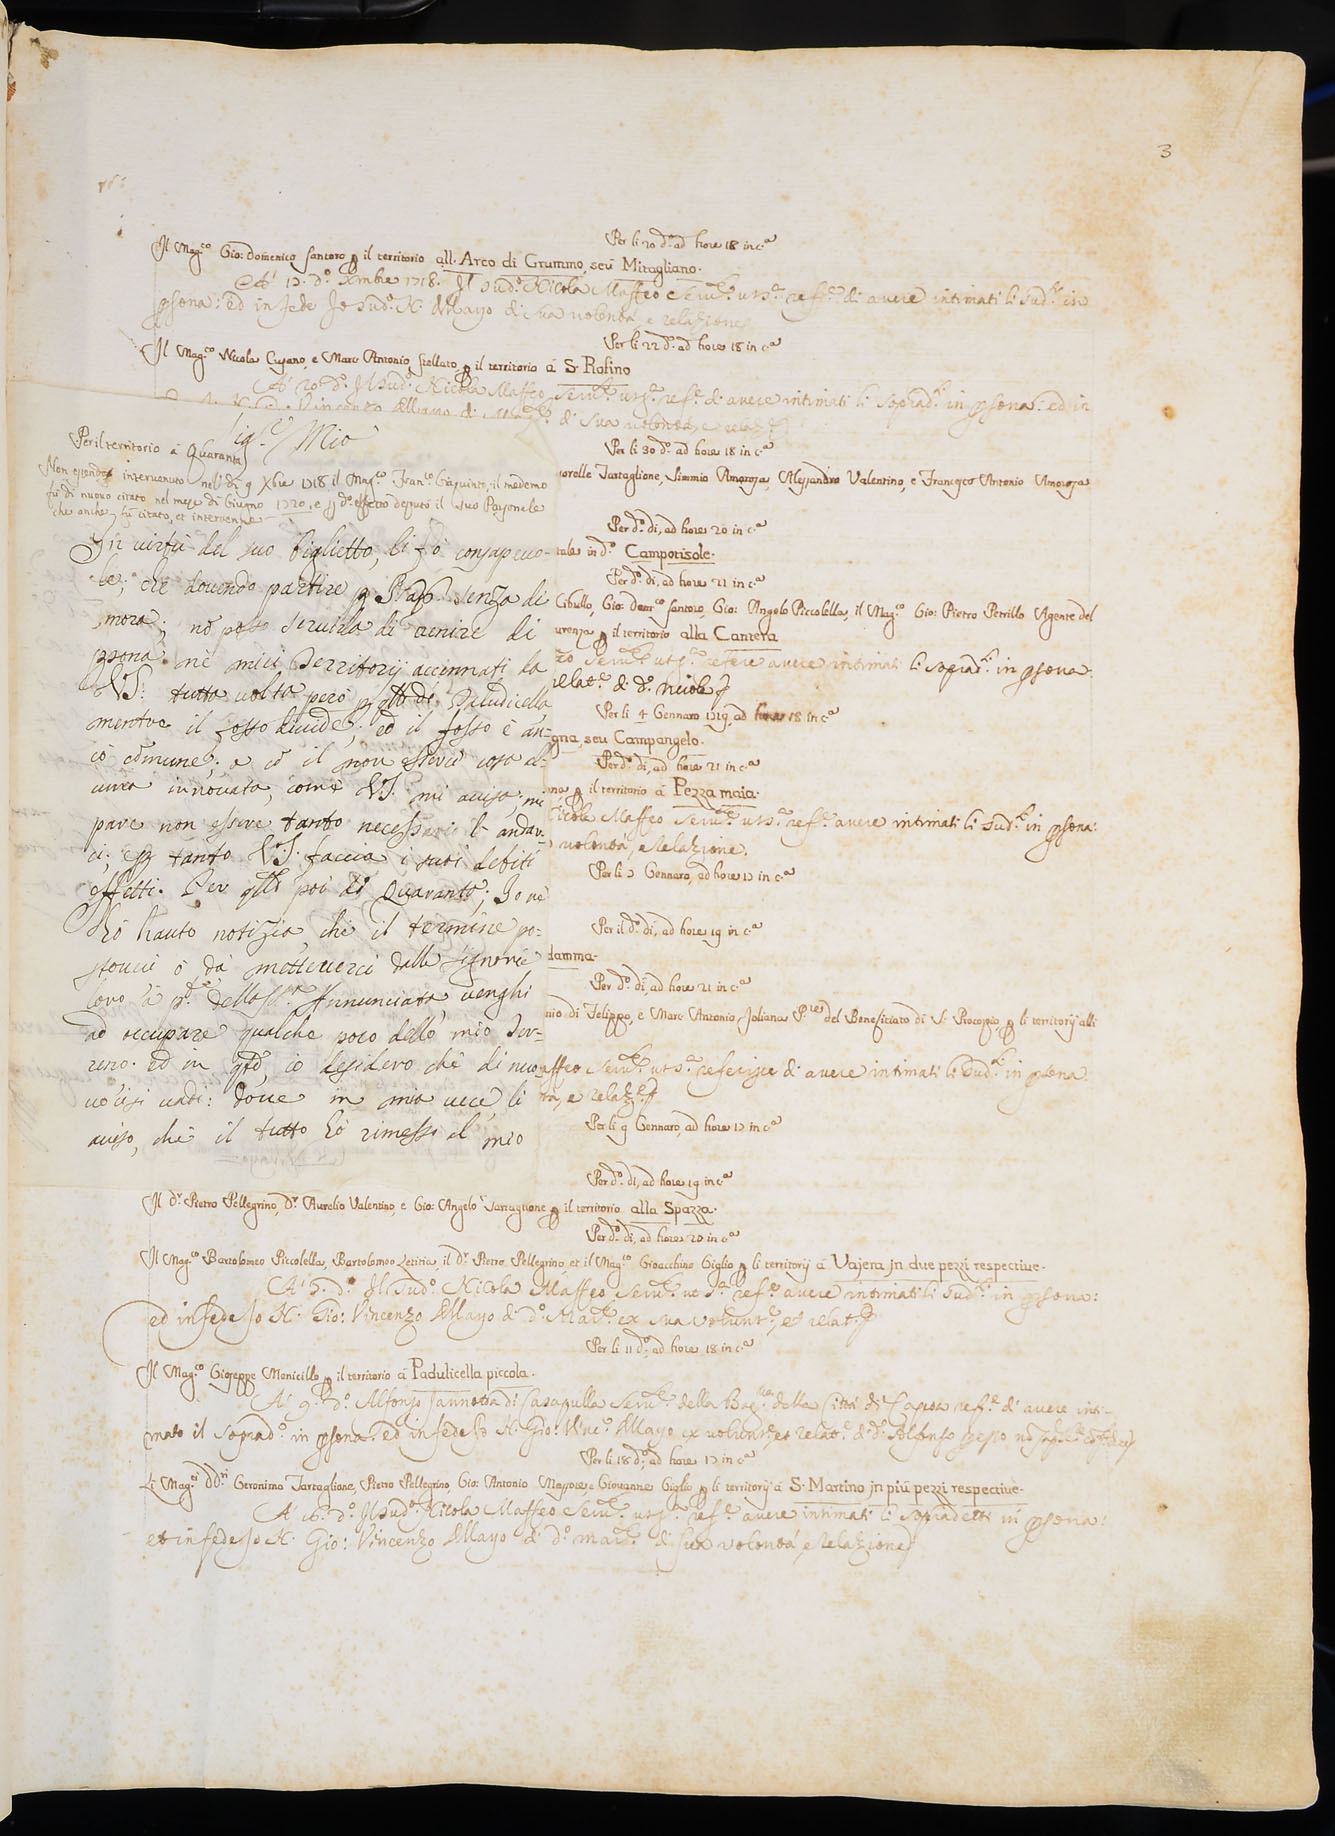 3
Per li 20 d.º ad hore 18 in c.ª
Il Mag.co Gio: Domenico Santoro p il territorio all'Arco di Grummo, seu Mitagliano.
A' 17. d.º Xmbre 1718. Il Sud.º Nicola Maffeo ref.e di avere intimati li Sud.i in
psona: ed in fede Io Sud.º N. di sua volontà, e relazione
Per li 22 d.º ad hore 18 in c.ª
Il Mag.co Nicola Cusano, e Marc Antonio Stellato, p il territorio à S. Rofino
A' 20 d.º Il Sud.º Nicola Maffeo ref.e di avere intimati li Soprad.i in psona: ed in
di sua volontà, e relaz.e
Mio
Per il territorio à Quaranta
Per li 30 d.º ad hore 18 in c.ª
Non essendosi intervenuto nel dì 9 Xbre 1718 il Mag.co Fran.co Giaquinto, il medemo
fù di nuovo citato nel mese di Giugno 1720, e p d.º effetto deputò il suo Parzonale
che anche fù citato, et intervenne
sorelle Tartaglione, Simmio Amorosa, Alessandro Valentino, e Francesco Antonio Amorosa
Per d.º dì, ad hore 20 in c.ª
tale in d.º Camporisole.
In virtù del suo biglietto, li fò consapevo-
le; che dovendo partire p senza di
Per d.º dì, ad hore 21 in c.ª
Cibullo, Gio: Dom.co Santoro, Gio: Angelo Piccolella, il Mag.co Gio: Pietro Petrillo Agente del
mora; nō posso servirla di venire di
urenza p il territorio alla Cantera
psona nè miei Territorij accennati da
refere avere intimati li soprad.i in psona:
VS: tutta volta però p di Padulicella
relat.e di d.º Nicola
mentre il fosso divide, ed il fosso è an-
Per li 4 Gennaro 1719, ad hore 18 in c.ª
gna, seu Campangelo.
cò comune; e cō il non esservi cosa al-
Per d.º dì, ad hore 21 in c.ª
cuna innovata, come VS. mi avisa, mi
na, p il territorio à Pezza maia.
pare non essere tanto necessario l'andar-
Nicola Maffeo ref.e avere intimati li Sud.i in psona:
ci; e p tanto VS. faccia i suoi debiti
volontà, e relazione.
effetti. Per poi di Quaranta; Io ne
Per li 7 Gennaro, ad hore 17 in c.ª
hò hauto notizia, che il termine po-
Per il d.º dì, ad hore 19 in c.ª
stovi ò da mettervici dalle Signorie
damma.
loro A.G.P. della SS.ma Annunciata venghi
Per d.º dì, ad hore 21 in c.ª
ad occupare qualche poco dello mio Ter-
nio di Felippo, e Marc Antonio Joliano P.res del Beneficiato di S. Procopio, p li territorij alli
reno. ed in io desidero che di nuo-
affeo referisce di avere intimati li Sud.i in psona:
vo ci si vadi: dove in mia vece li
tà, e relaz.e
aviso, che il tutto hò rimesso al mio
Per li 9 Gennaro, ad hore 17 in c.ª
Per d.º dì, ad hore 19 in c.ª
Il d.r Pietro Pellegrino, d.r Aurelio Valentino, e Gio: Angelo Tartaglione p il territorio alla Spazza.
Per d.º dì, ad hore 20 in c.ª
Il Mag.co Bartolomeo Piccolella, Bartolomeo Letitia, il d.r Pietro Pellegrino, et il Mag.co Gioacchino Giglio p li territorij à Vajera in due pezzi respective.
A' 5. d.º Il Sud.º Nicola Maffeo ref.e avere intimati li Sud.i in psona:
ed in fede Io N. Gio: Vincenzo di d.º ex sua volunt.e et relat.e
Per li 11 d.º, ad hore 18 in c.ª
Il Mag.co Giuseppe Monicillo p il territorio à Padulicella piccola.
A' 9. d.º Alfonso Iannotta di Casapulla della della Città di Capua ref.e di avere inti-
mato il Soprad.º in psona: ed in fede Io N. Gio: Vinc.º ex volunt.e et relat.e di d.º Alfonso
Per li 18 d.º, ad hore 17 in c.ª
Li Mag.ci DD.ri Geronimo Tartaglione, Pietro Pellegrino, Gio: Antonio e Giovanne Giglio p li territorij à S. Martino in più pezzi respective.
A' 16. d.º Il Sud.º Nicola Maffeo ref.e avere intimati li sopradetti in psona:
et in fede Io N. Gio: Vincenzo di d.º di sua volontà, e relazione